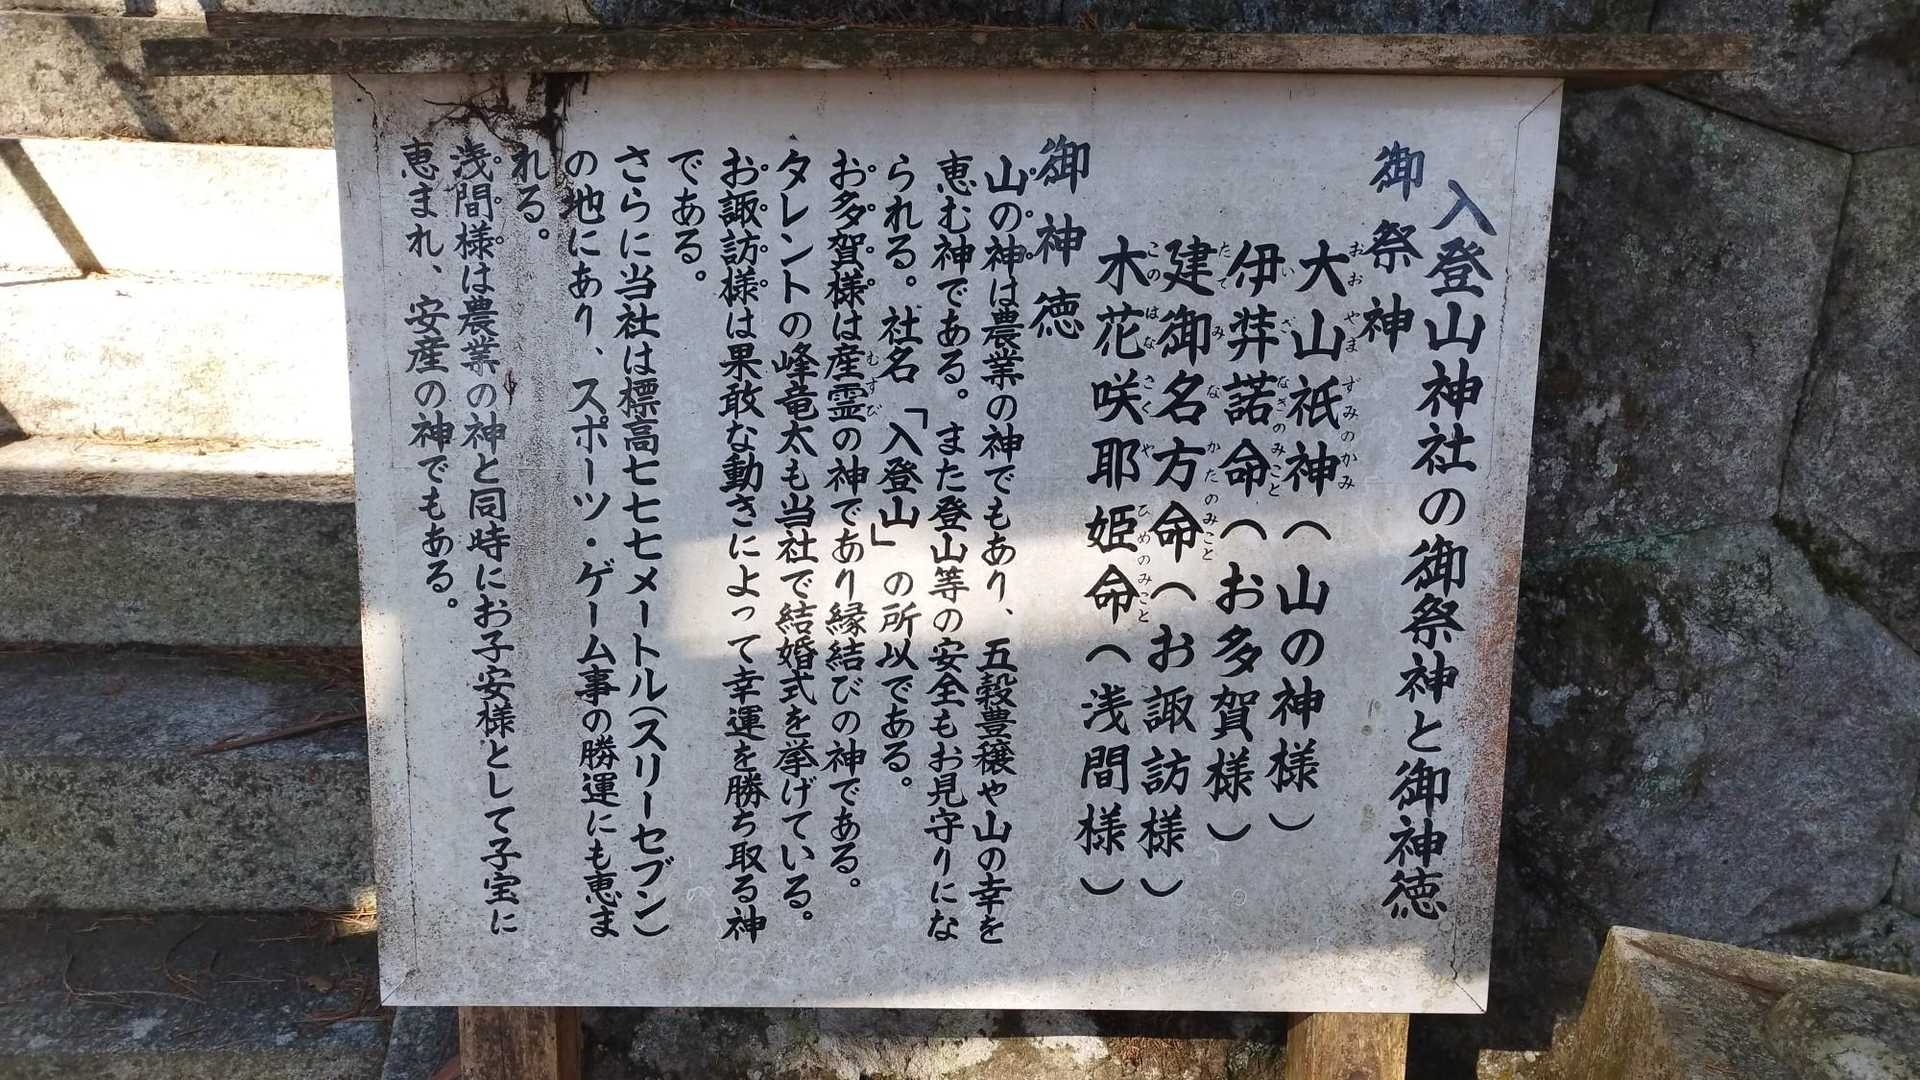 入登山神社の御祭神と御神徳
御祭神
大山祇神(山の神様)
おおやまずみのかみ
伊弉諾命(お多賀様)
いざなぎのみこと
建御名方命(お諏訪様)
たてみなかたのみこと
木花咲耶姫命(浅間様)
このはなさくやひめのみこと
御神徳
山の神は農業の神でもあり、五穀豊穣や山の幸を
恵む神である。また登山等の安全もお見守りにな
られる。社名「入登山」の所以である。
お多賀様は産霊の神であり縁結びの神である。
むすび
タレントの峰竜太も当社で結婚式を挙げている。
お諏訪様は果敢な動きによって幸運を勝ち取る神
である。
さらに当社は標高七七七メートル(スリーセブン)
の地にあり、スポーツ・ゲーム事の勝運にも恵ま
れる。
浅間様は農業の神と同時にお子安様として子宝に
恵まれ、安産の神でもある。